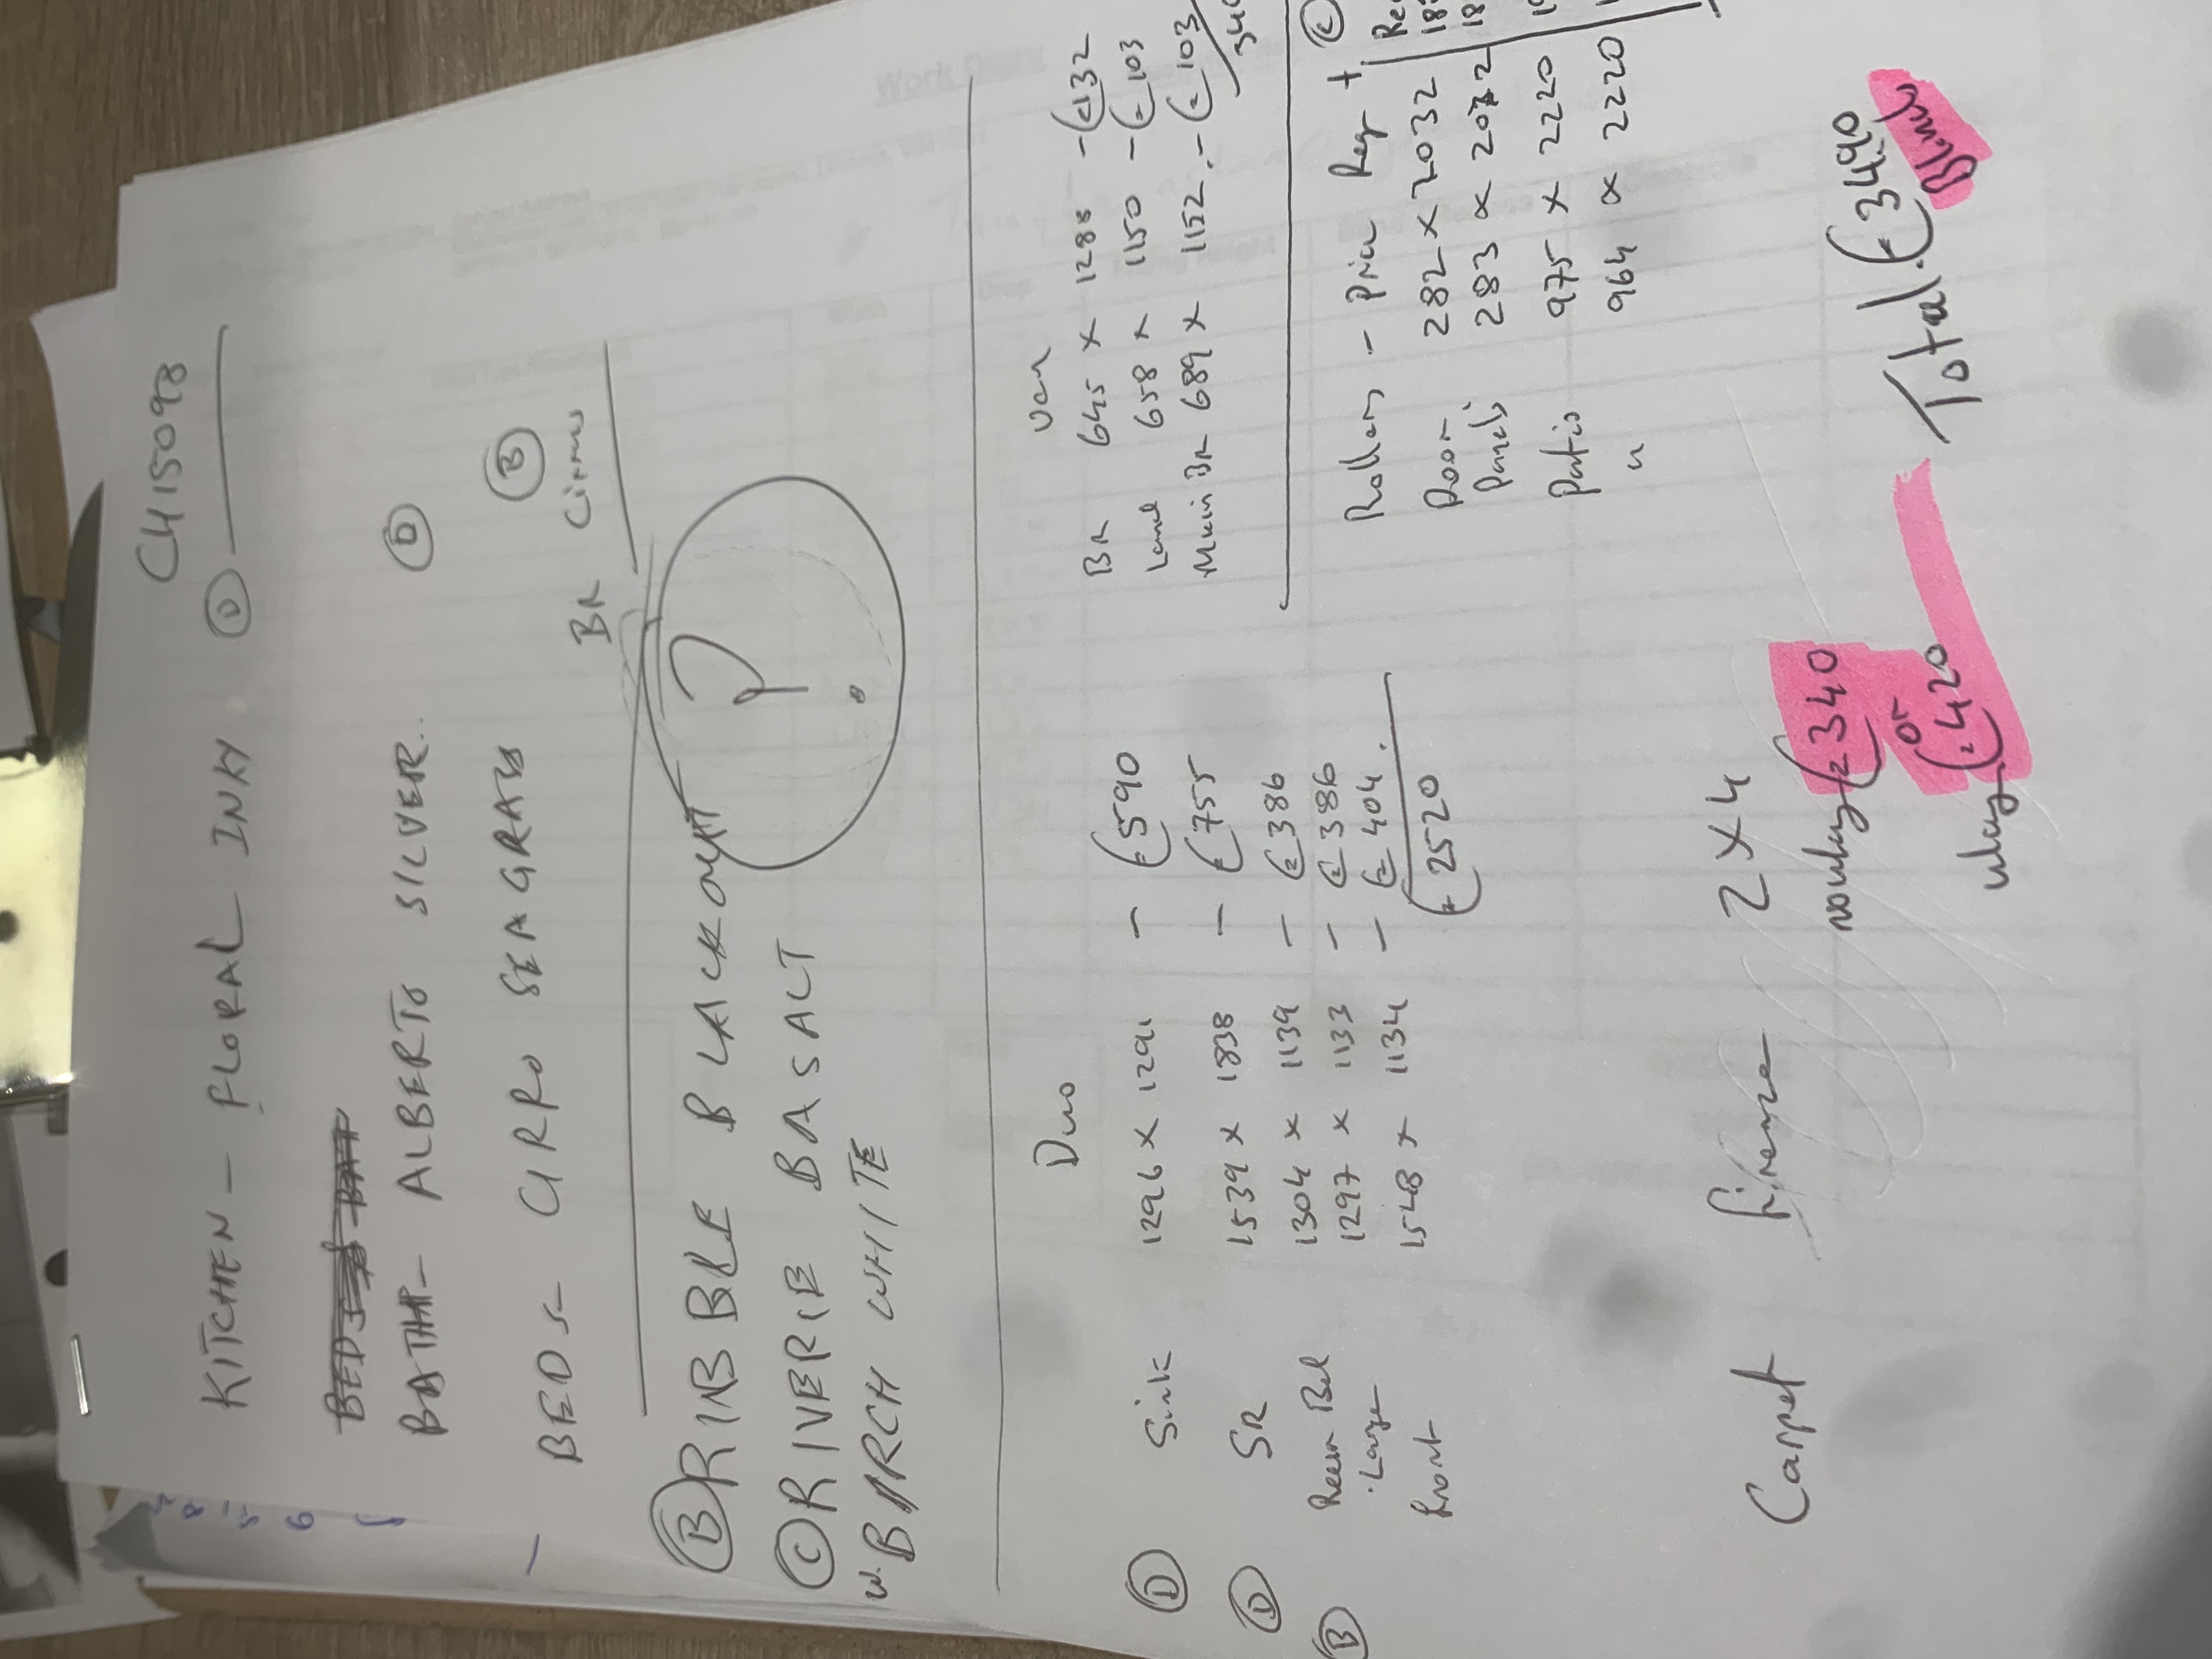 CH15098
KITCHEN - FLORAL INKY (D)
BEDS BATH
BATH - ALBERTO SILVER. (D)
BEDS - CIRRO SEAGRASS (B)
BR Cirrus
(B) RINBBLE BLACKOUT
?
(C) RIVERIE BASALT
W. BIRCH WHITE
Work Diary
Duo
(D) Sink 1296 x 1291 - £590
(D) SR 1539 x 1838 - £755
(B) Reem Bed 1304 x 1139 - £386
Large 1297 x 1133 - £386
Front 1548 x 1134 - £404.
£2520
Ven
BR 645 x 1288 - £132
Land 658 x 1150 - £103
Main BR 689 x 1152 - £103
340
Rollers - Price Reg + (C)
Door 282 x 2032
Panels 283 x 2032
Patio 975 x 2220
" 964 x 2220
Carpet firenze 2 x 4
£340
or
£420
Total. £3490
Blinds